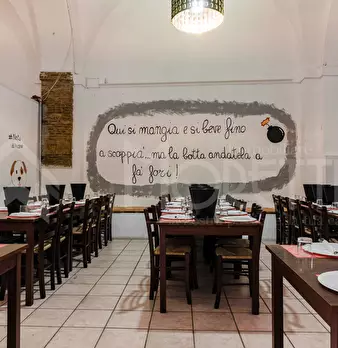 Qui si mangia e si beve fino
a scoppia'... ma la botta andatela a
fa' fori !